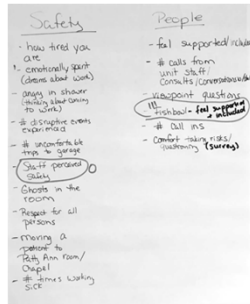 Safety
- how tired you
are
- emotionally spent
(dreams about work)
- angry in shower
(thinking about coming
to work)
- # disruptive events
experienced
- # uncomfortable
trips to garage
- Staff perceived
safety
- Ghosts in the
room
- Respect for all
persons
- moving a
patient to
Patty Ann room/
Chapel
- # times working
sick
People
- feel supported/
- # calls from
unit staff/
consults/conversations
- viewpoint questions
!!!
- fishbowl - feel supported
+ included
- # call ins
- Comfort taking risks/
questioning (survey)